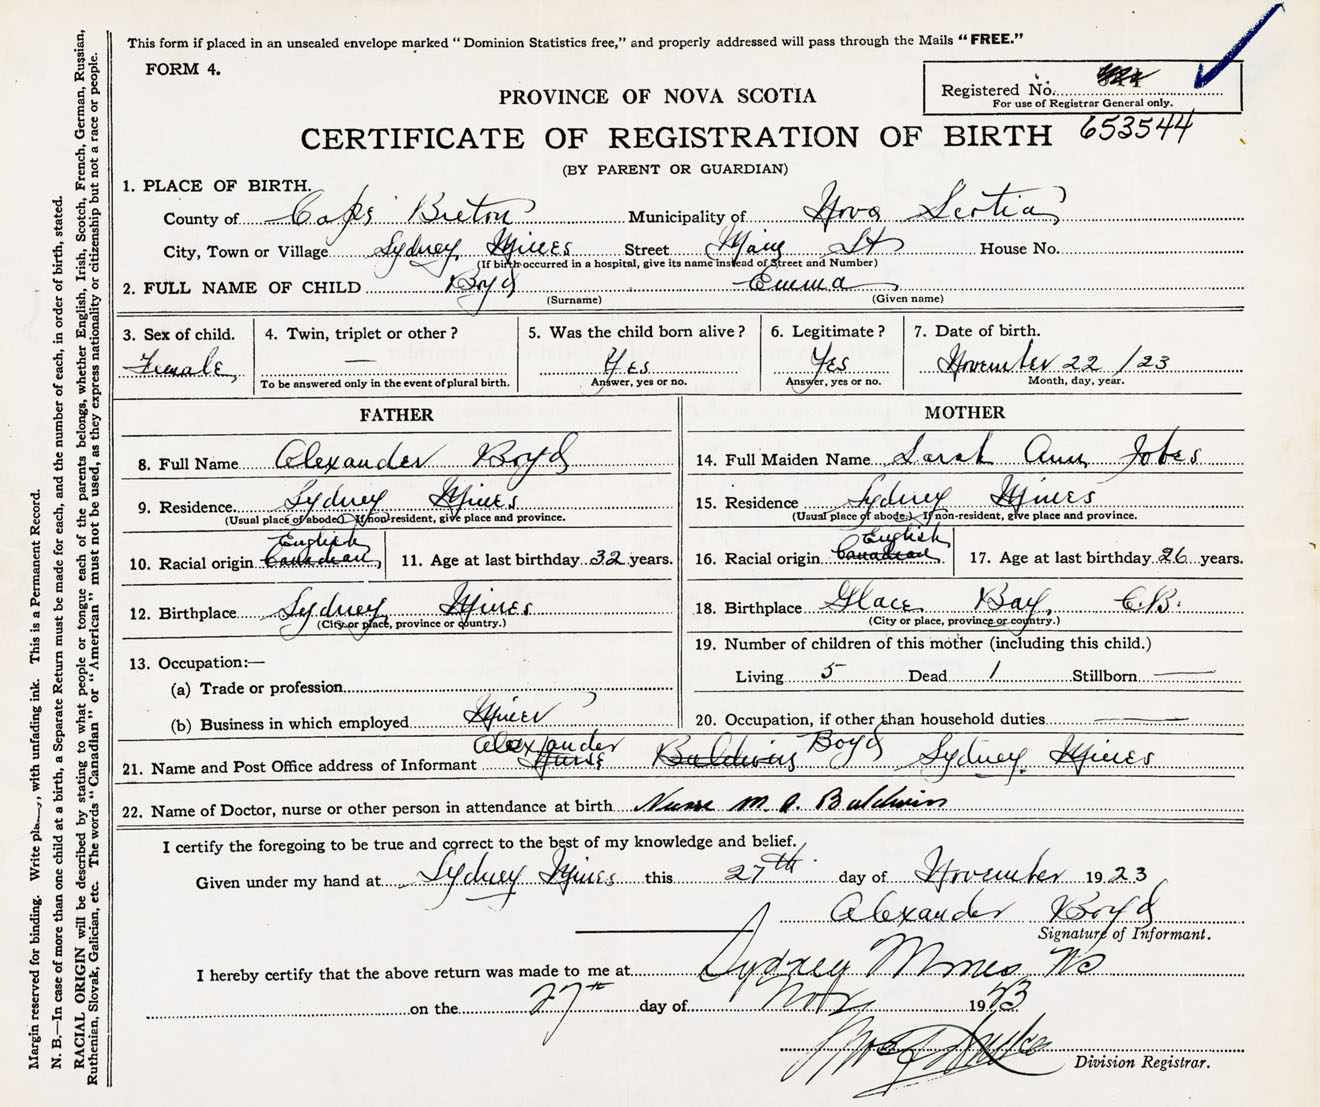 This form if placed in an unsealed envelope marked "Dominion Statistics free," and properly addressed will pass through the Mails "FREE."
FORM 4.
Registered No.
For use of Registrar General only.
653544
PROVINCE OF NOVA SCOTIA
CERTIFICATE OF REGISTRATION OF BIRTH
(BY PARENT OR GUARDIAN)
1. PLACE OF BIRTH.
County of Cape Breton Municipality of Nova Scotia
City, Town or Village Sydney Mines Street Main St House No.
(If birth occurred in a hospital, give its name instead of Street and Number)
2. FULL NAME OF CHILD Boyd Emma
(Surname) (Given name)
3. Sex of child. 4. Twin, triplet or other? 5. Was the child born alive? 6. Legitimate? 7. Date of birth.
Female — Yes Yes November 22 /23
To be answered only in the event of plural birth. Answer, yes or no. Answer, yes or no. Month, day, year.
FATHER
8. Full Name Alexander Boyd
9. Residence Sydney Mines
(Usual place of abode) If non-resident, give place and province.
English
10. Racial origin Canadian 11. Age at last birthday 32 years.
12. Birthplace Sydney Mines
(City or place, province or country.)
13. Occupation:—
(a) Trade or profession
(b) Business in which employed Miner
MOTHER
14. Full Maiden Name Sarah Ann Jobes
15. Residence Sydney Mines
(Usual place of abode.) If non-resident, give place and province.
English
16. Racial origin Canadian 17. Age at last birthday 26 years.
18. Birthplace Glace Bay, C.B.
(City or place, province or country.)
19. Number of children of this mother (including this child.)
Living 5 Dead 1 Stillborn —
20. Occupation, if other than household duties —
Alexander Boyd
21. Name and Post Office address of Informant Nurse Baldwin Sydney Mines
22. Name of Doctor, nurse or other person in attendance at birth Nurse M. A. Baldwin
I certify the foregoing to be true and correct to the best of my knowledge and belief.
Given under my hand at Sydney Mines this 27th day of November 1923
Alexander Boyd
Signature of Informant.
I hereby certify that the above return was made to me at Sydney Mines NS
on the 27th day of Nov 1923
Division Registrar.
Margin reserved for binding. Write with unfading ink. This is a Permanent Record.
N. B.—In case of more than one child at a birth, a Separate Return must be made for each, and the number of each, in order of birth, stated.
RACIAL ORIGIN will be described by stating to what people or tongue each of the parents belongs, whether English, Irish, Scotch, French, German, Russian,
Ruthenian, Slovak, Galician, etc. The words "Canadian" or "American" must not be used, as they express nationality or citizenship but not a race or people.